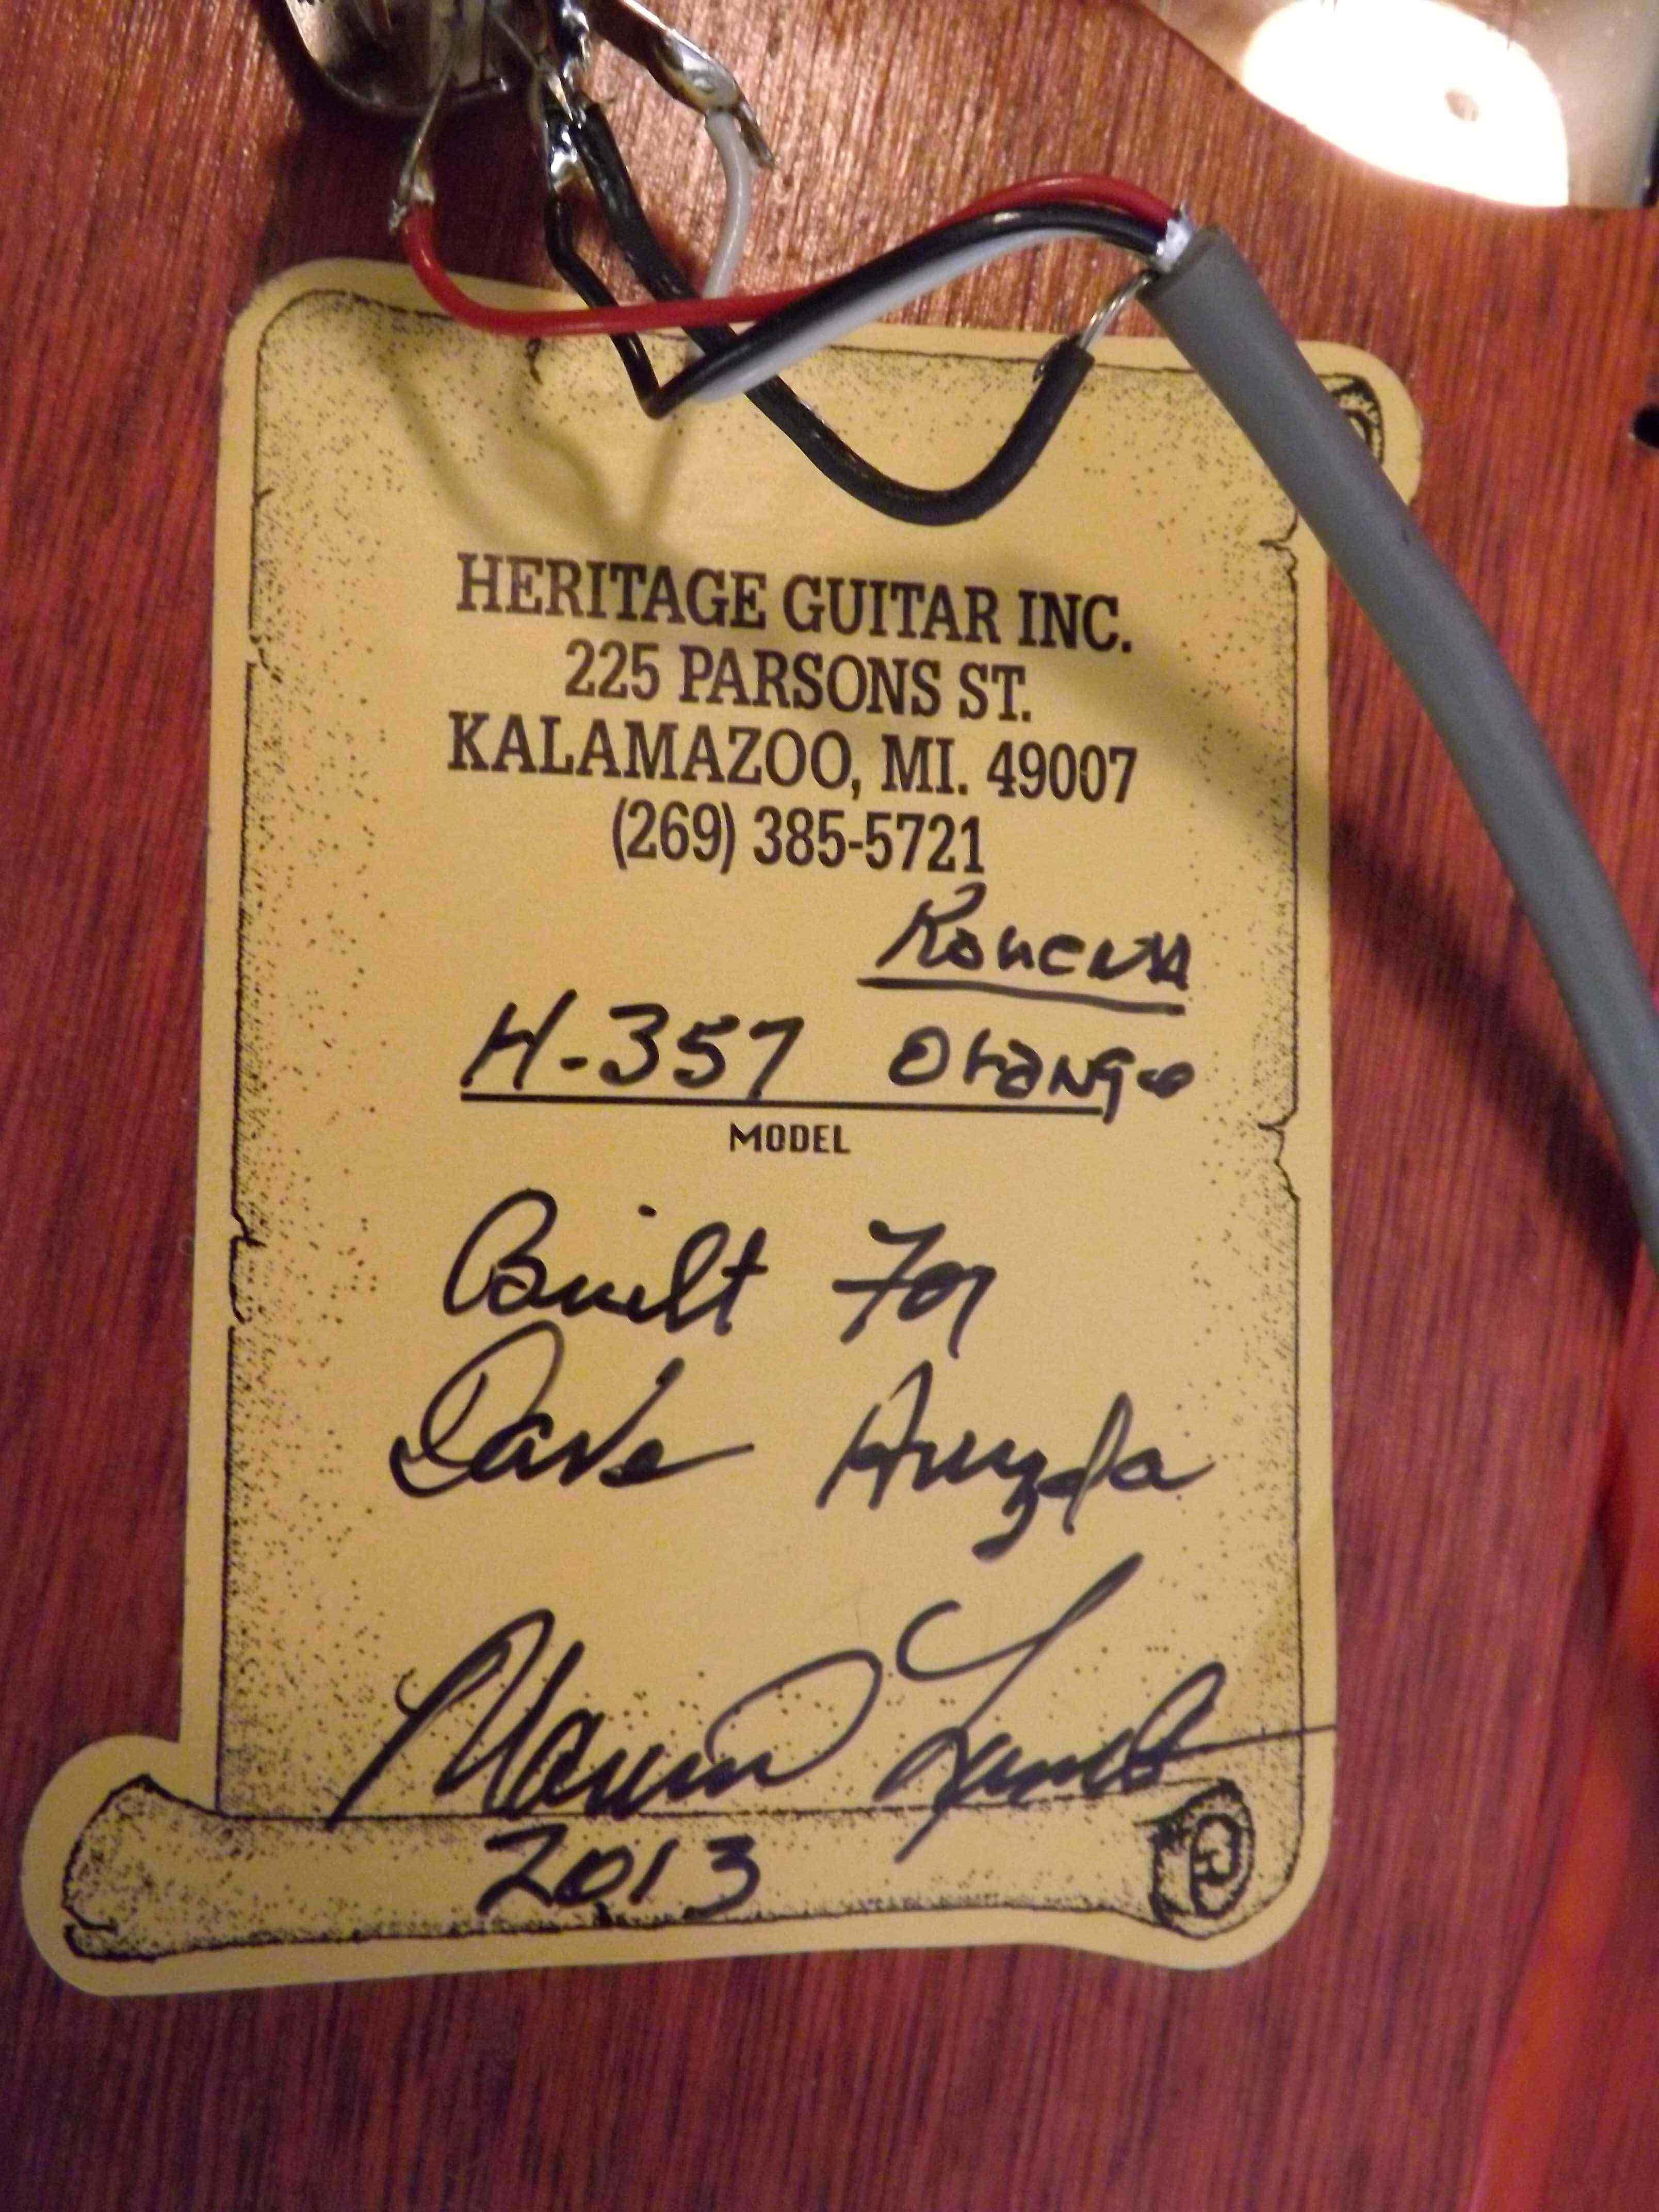 HERITAGE GUITAR INC.
225 PARSONS ST.
KALAMAZOO, MI. 49007
(269) 385-5721
H-357 Orange
MODEL
Built For
Dave
Marvin Lamb
2013